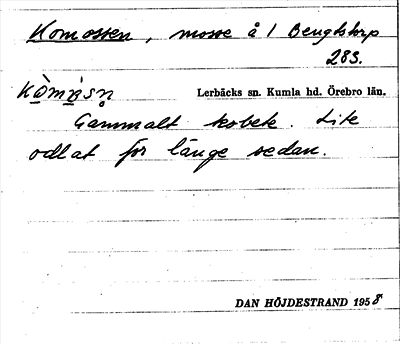 Komossen, mosse å 1 Bengtstorp
283.
Lerbäcks sn. Kumla hd. Örebro län.
Gammalt kobete. Lite
odlat för länge sedan.
DAN HÖJDESTRAND 1958